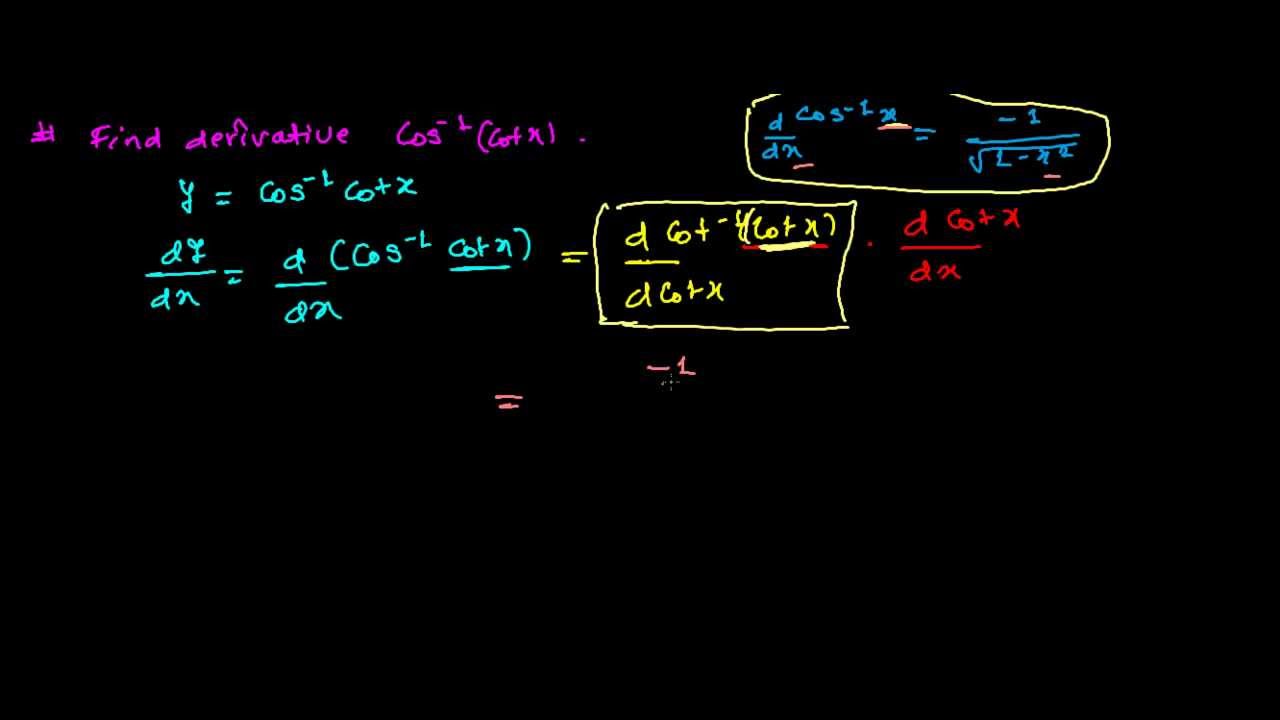 # Find derivative Cos⁻¹(Cotx).
d/dx Cos⁻¹x = -1/√(1-x²)
y = Cos⁻¹ Cotx
dy/dx = d/dx (Cos⁻¹ Cotx) = d Cot⁻¹(Cotx)/d Cotx · d Cotx/dx
= -1